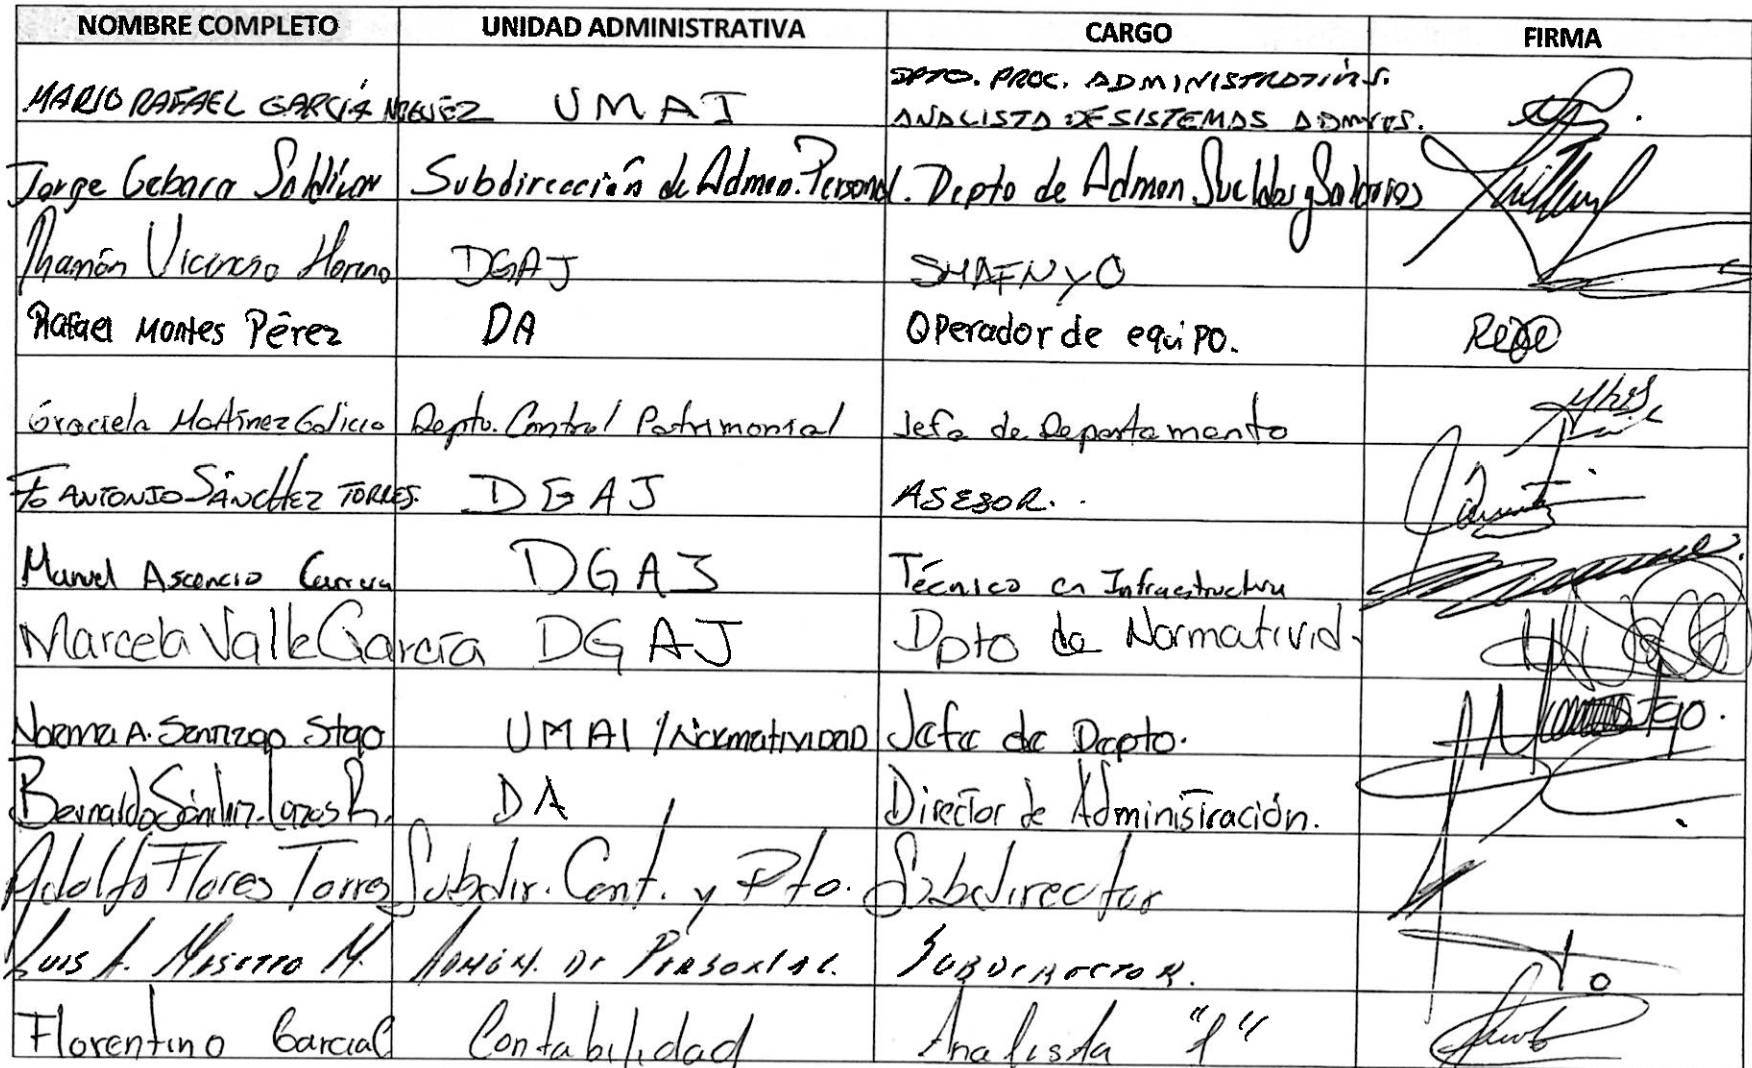 NOMBRE COMPLETO UNIDAD ADMINISTRATIVA CARGO FIRMA
MARIO RAFAEL GARCÍA UMAI DPTO. PROC. ADMINISTRATIVOS.
ANALISTA DE SISTEMAS ADMVOS.
Jorge Gebara Subdirección de Admon. Personal. Depto de Admon Sueldos y Salarios
Vicencio DGAJ
Rafael Montes Pérez DA Operador de equipo.
Graciela Martínez Galicia Depto. Control Patrimonial Jefa de Departamento
Fo ANTONIO SÁNCHEZ TORRES. DGAJ ASESOR.
Manuel Ascencio DGAJ Técnico en Infraestructura
Marcela Valle García DGAJ Dpto de Normativid.
Norma A. Santiago Stgo UMAI / Normatividad Jefa de Depto.
Bernaldo DA Director de Administración.
Adolfo Flores Torres Subdir. Cont. y Pto. Subdirector
Luis A. M. ADMÓN. DE PERSONAL. SUBDIRECTOR.
Florentino Garcia C Contabilidad Analista "I"